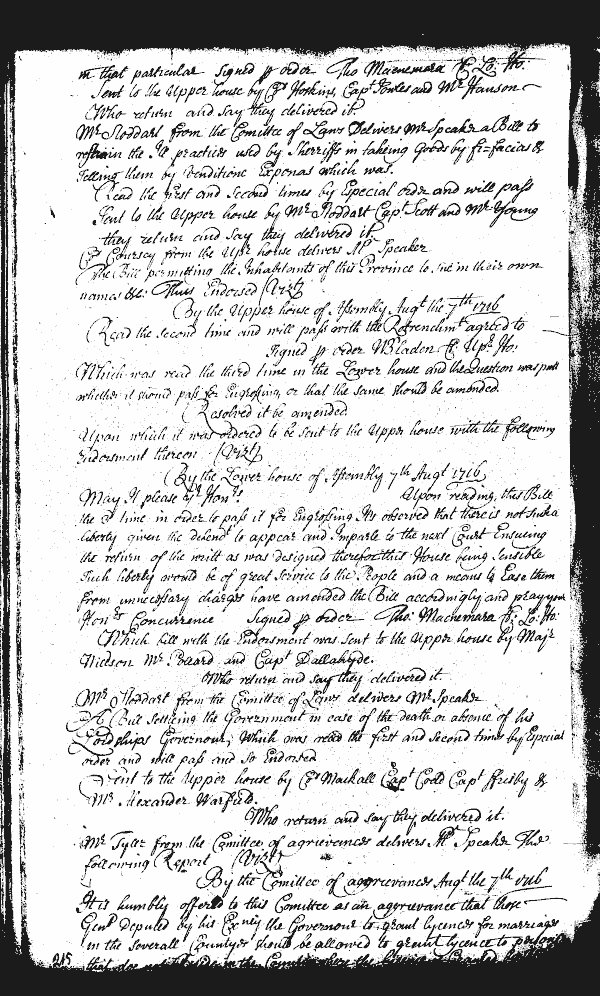 in that particular Signed p order Tho Macnemara Cl. Lo. Ho.
Sent to the Upper house by Hoskins, Capt Fowles and Mr Hanson
Who return and say they delivered it.
Mr Stoddart from the Comittee of Laws Delivers Mr Speaker a Bill to
restrain the Ill practices used by Sherriffs in takeing Goods by fi-facias &
Selling them by Venditione Exponas which was.
Read the first and Second times by Especial order and will pass
Sent to the Upper house by Mr Stoddart Capt Scott and Mr Young
they return and say they delivered it.
Coursey from the Upr house delivers Mr Speaker
The Bill permitting the Inhabitants of this Province to sue in their own
names &c. Thus Endorsed (Vizt)
By the Upper house of Assembly Augt the 7th 1716
Read the second time and will pass with the agreed to
Signed p order W Bladen Cl. Upr Ho:
Which was read the third time in the Lower house and the Question was putt
whether it should pass for Engrossing or that the same should be amended.
Resolved it be amended.
Upon which it was ordered to be sent to the Upper house with the following
Endorsment thereon (Vizt)
By the Lower house of Assembly 7th Augt 1716
May It please yr Honrs Upon reading this Bill
the 3d time in order to pass it for Engrossing Its observed that there is not such a
liberty given the defendt to appear and Imparle to the next Court Ensueing
the return of the writt as was designed therefor this House being Sensible
Such liberty would be of great Service to the People and a means to Ease them
from unnecessary charges have amended the Bill accordingly and pray your
Honrs Concurrence Signed p order Tho: Macnemara Cl. Lo: Ho:
Which bill with the Endorsment was sent to the Upper house by Majr
Mr and Capt Dallahyde.
Who return and say they delivered it
Mr Stoddart from the Comittee of Laws delivers Mr Speaker
A Bill Settleing the Government in case of the death or absence of his
Lordships Governour, Which was read the first and second times by Especial
order and will pass and So Endorsed
Sent to the Upper house by Mackall Capt Capt &
Mr Alexander Warfield.
Who return and say they delivered it.
Mr Tyler from the Comittee of agrievances delivers Mr Speaker The
following Report (Vizt)
By the Comittee of aggrievances Augt the 7th 1716
It is humbly offered to this Comittee as an aggrievance that those
Gent deputed by his Exncy the Governour to grant lycences for marriages
in the Severall Countyes should be allowed to grant lycence to persons
that doe not in the County where the